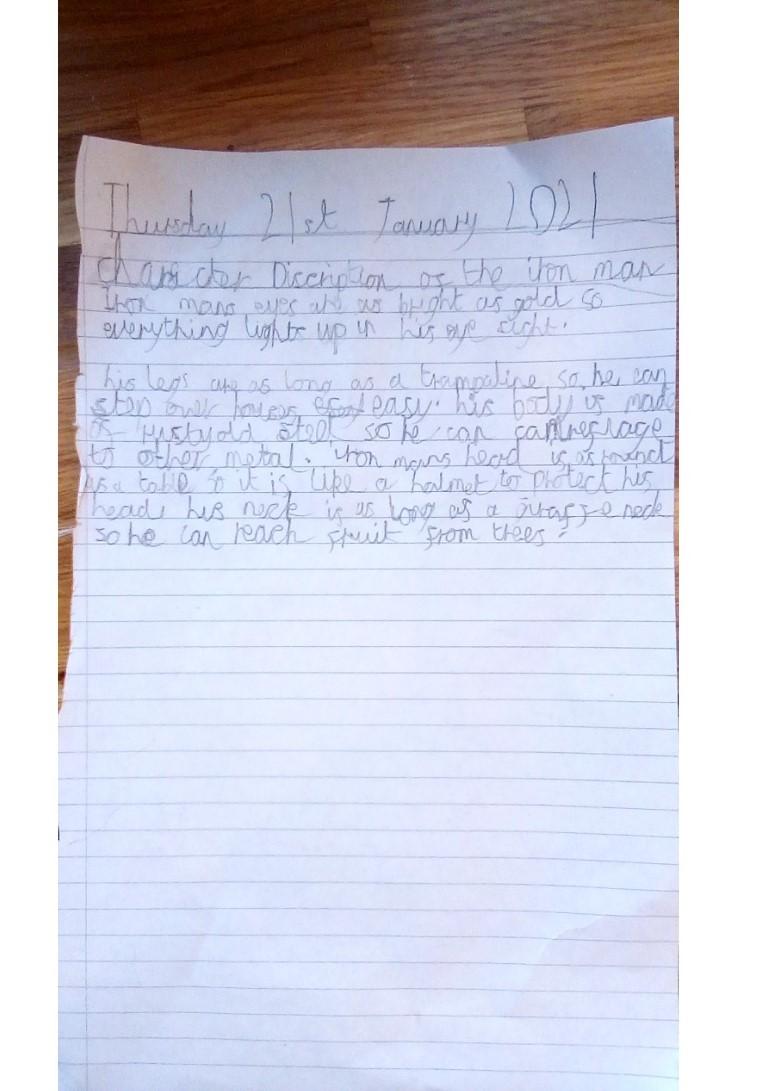 Thursday 21st January 2021
Character Discription of the iron man
Iron mans eyes are as bright as gold so
everything lights up in his eye sight.
his legs are as long as a trampaline so he can
step over houses easy. his body is made
of rusty old steel so he can
to other metal. iron mans head is as round
as a table so it is like a halmet to protect his
head, his neck is as long as a neck
so he can reach fruit from trees.